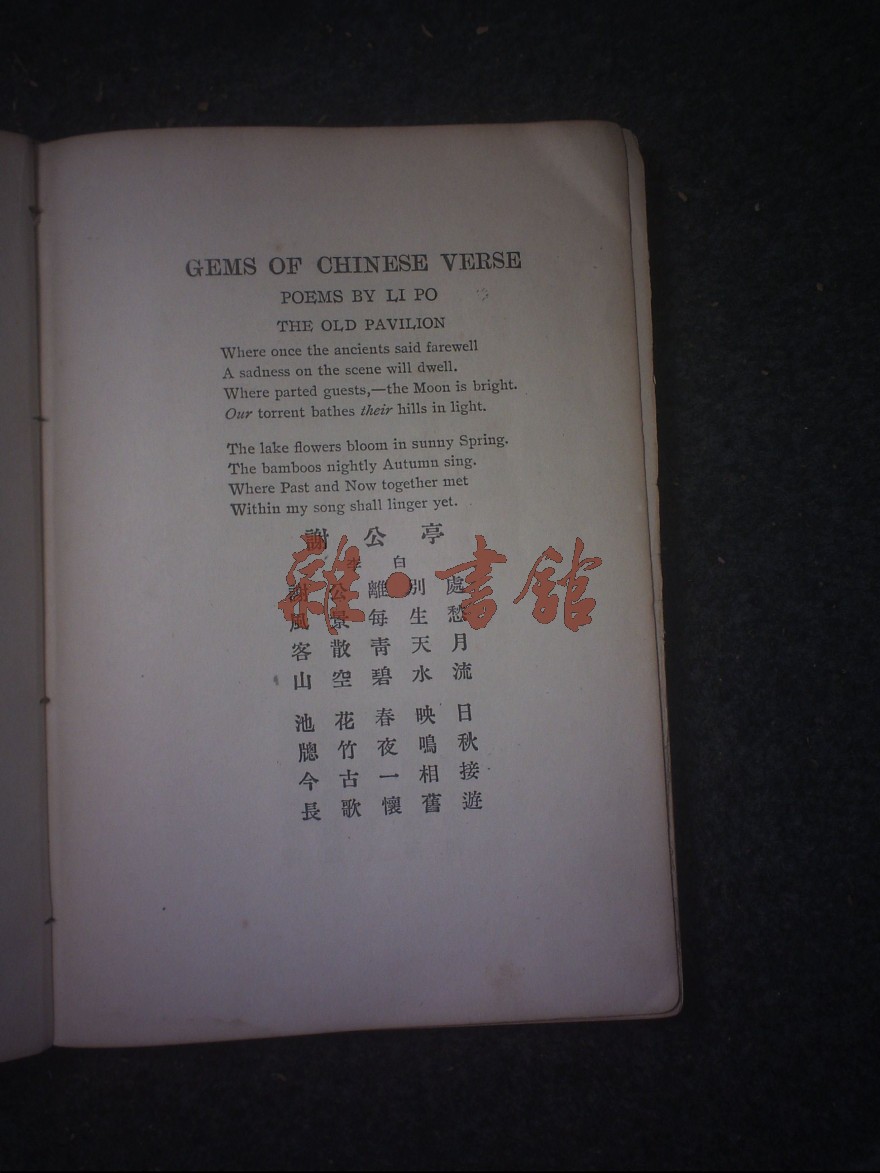 GEMS OF CHINESE VERSE
POEMS BY LI PO
THE OLD PAVILION
Where once the ancients said farewell
A sadness on the scene will dwell.
Where parted guests,—the Moon is bright.
Our torrent bathes their hills in light.
The lake flowers bloom in sunny Spring.
The bamboos nightly Autumn sing.
Where Past and Now together met
Within my song shall linger yet.
謝公亭
李白
謝公離別處
風景每生愁
客散靑天月
山空碧水流
池花春映日
牕竹夜鳴秋
今古一相接
長歌懷舊遊
雜·書館